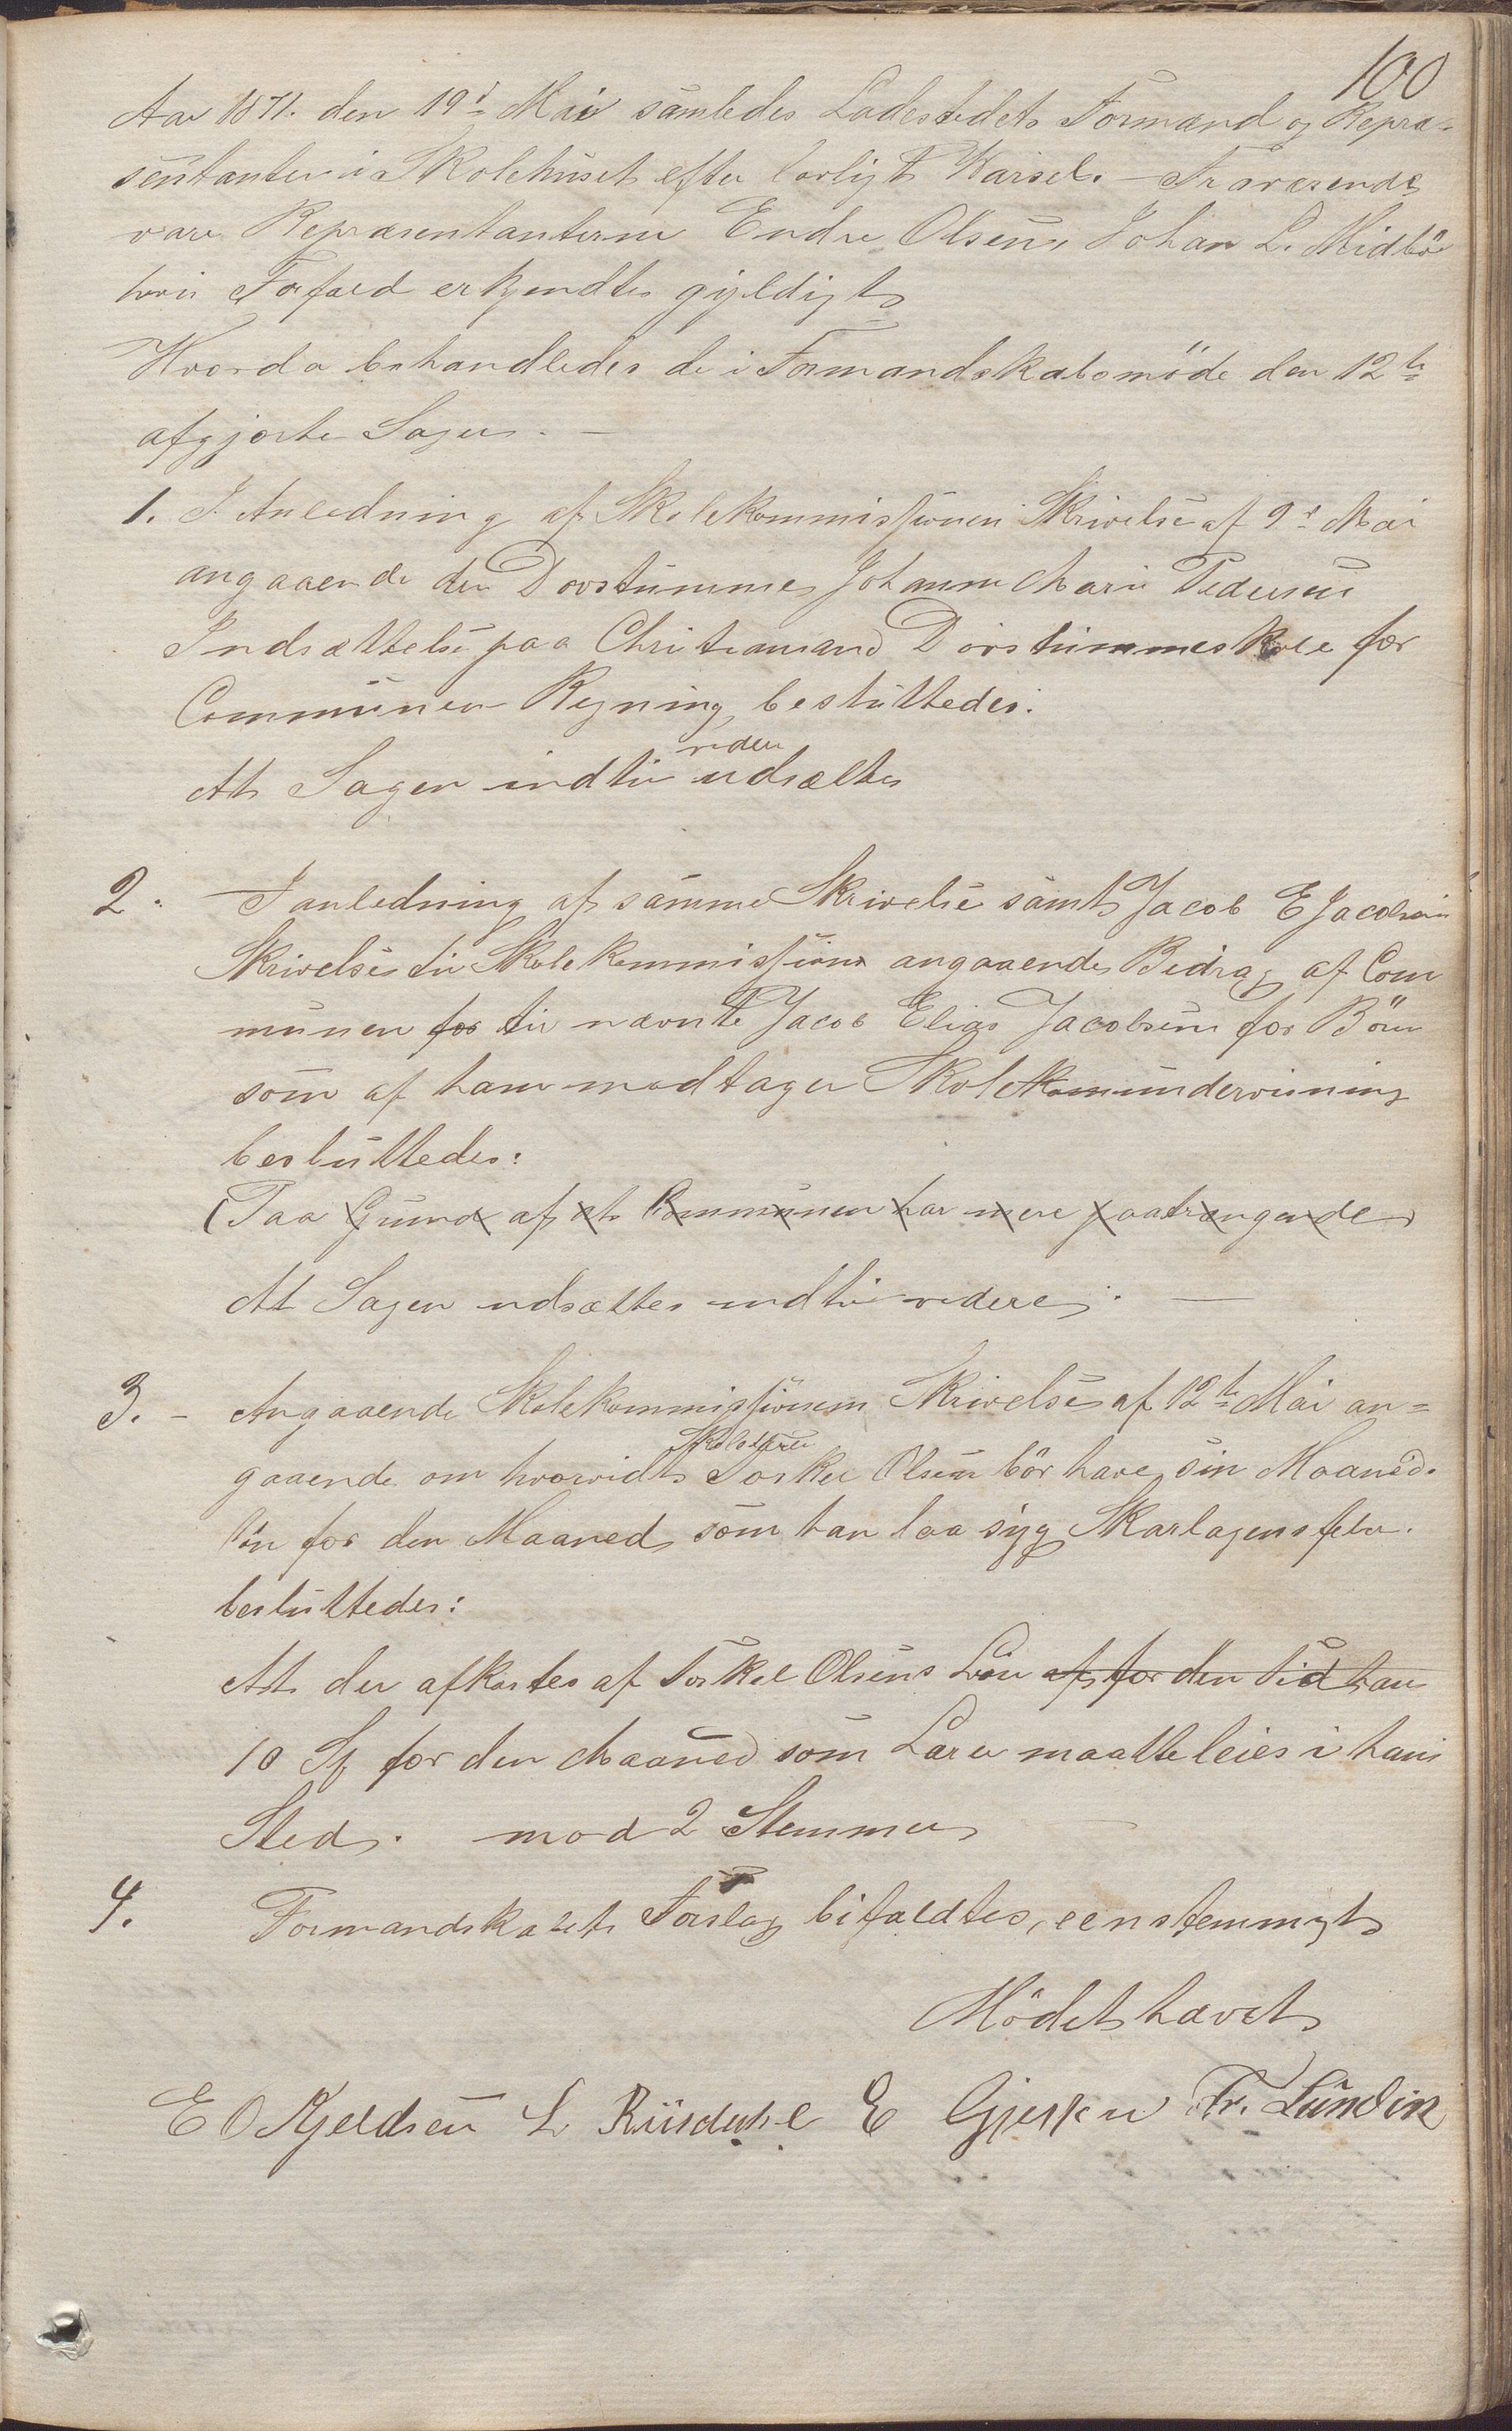 100
Aar 1871. den 19de Mai samledes Ladestedets Formænd og Repræ-
sentanter i Skolehuset efter lovligt Varsel. - Fraværende
vare Repræsentanterne Endre Olsen, Johan L. Midbö
hvis Forfald erkjendtes gyldigt
Hvorda behandledes de i Formandskabsmöde den 12te
afgjorte Sager. -
1. I Anledning af Skolekommissionens Skrivelse af 9de Mai
angaaende den Dövstumme Johanne Marie Pedersens
Indsættelse paa Christiansand Dövstummeskole for
Communens Regning besluttedes:
videre
At Sagen indtil udsættes
2. I anledning af samme Skrivelse samt Jacob E Jacobsens
Skrivelse til Skolekommissionen angaaende Bidrag af Com
munen for til nævnte Jacob Elias Jacobsen for Börn
som af ham modtager Skolekomundervisning
besluttedes:
(Paa Grund af at Communen har mere paatrængende
At Sagen udsættes indtil videre. -
3. - Angaaende Skolekommissionens Skrivelse af 12te Mai an=
Skolelærer
gaaende om hvorvidt Torkel Olsen bör have sin Maaneds
lön for den Maaned som han laa syg Skarlagensfeber.
besluttedes:
At der afkortes af Torkel Olsens Lön af for den Tid han
10 Sp for den Maaned som Lærer maatte leies i hans
Sted. mod 2 Stemmer
4. Formandskabets Forslag bifaldtes, eenstemmigt
Mödet hævet
E O Kjeldsen L Riisdahl E Gjerken Fr. Lundin